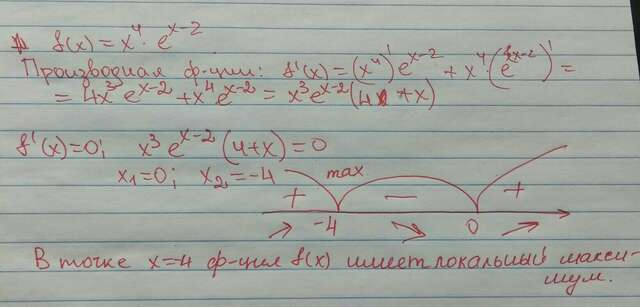 f(x) = x⁴ · e^(x-2)
Производная ф-ции: f'(x) = (x⁴)' e^(x-2) + x⁴ · (e^(x-2))' =
= 4x³ e^(x-2) + x⁴ e^(x-2) = x³ e^(x-2) (4 + x)
f'(x) = 0; x³ e^(x-2) (4+x) = 0
x₁ = 0; x₂ = -4
max
+ − +
-4 0
В точке x=-4 ф-ция f(x) имеет локальный макси-
мум.